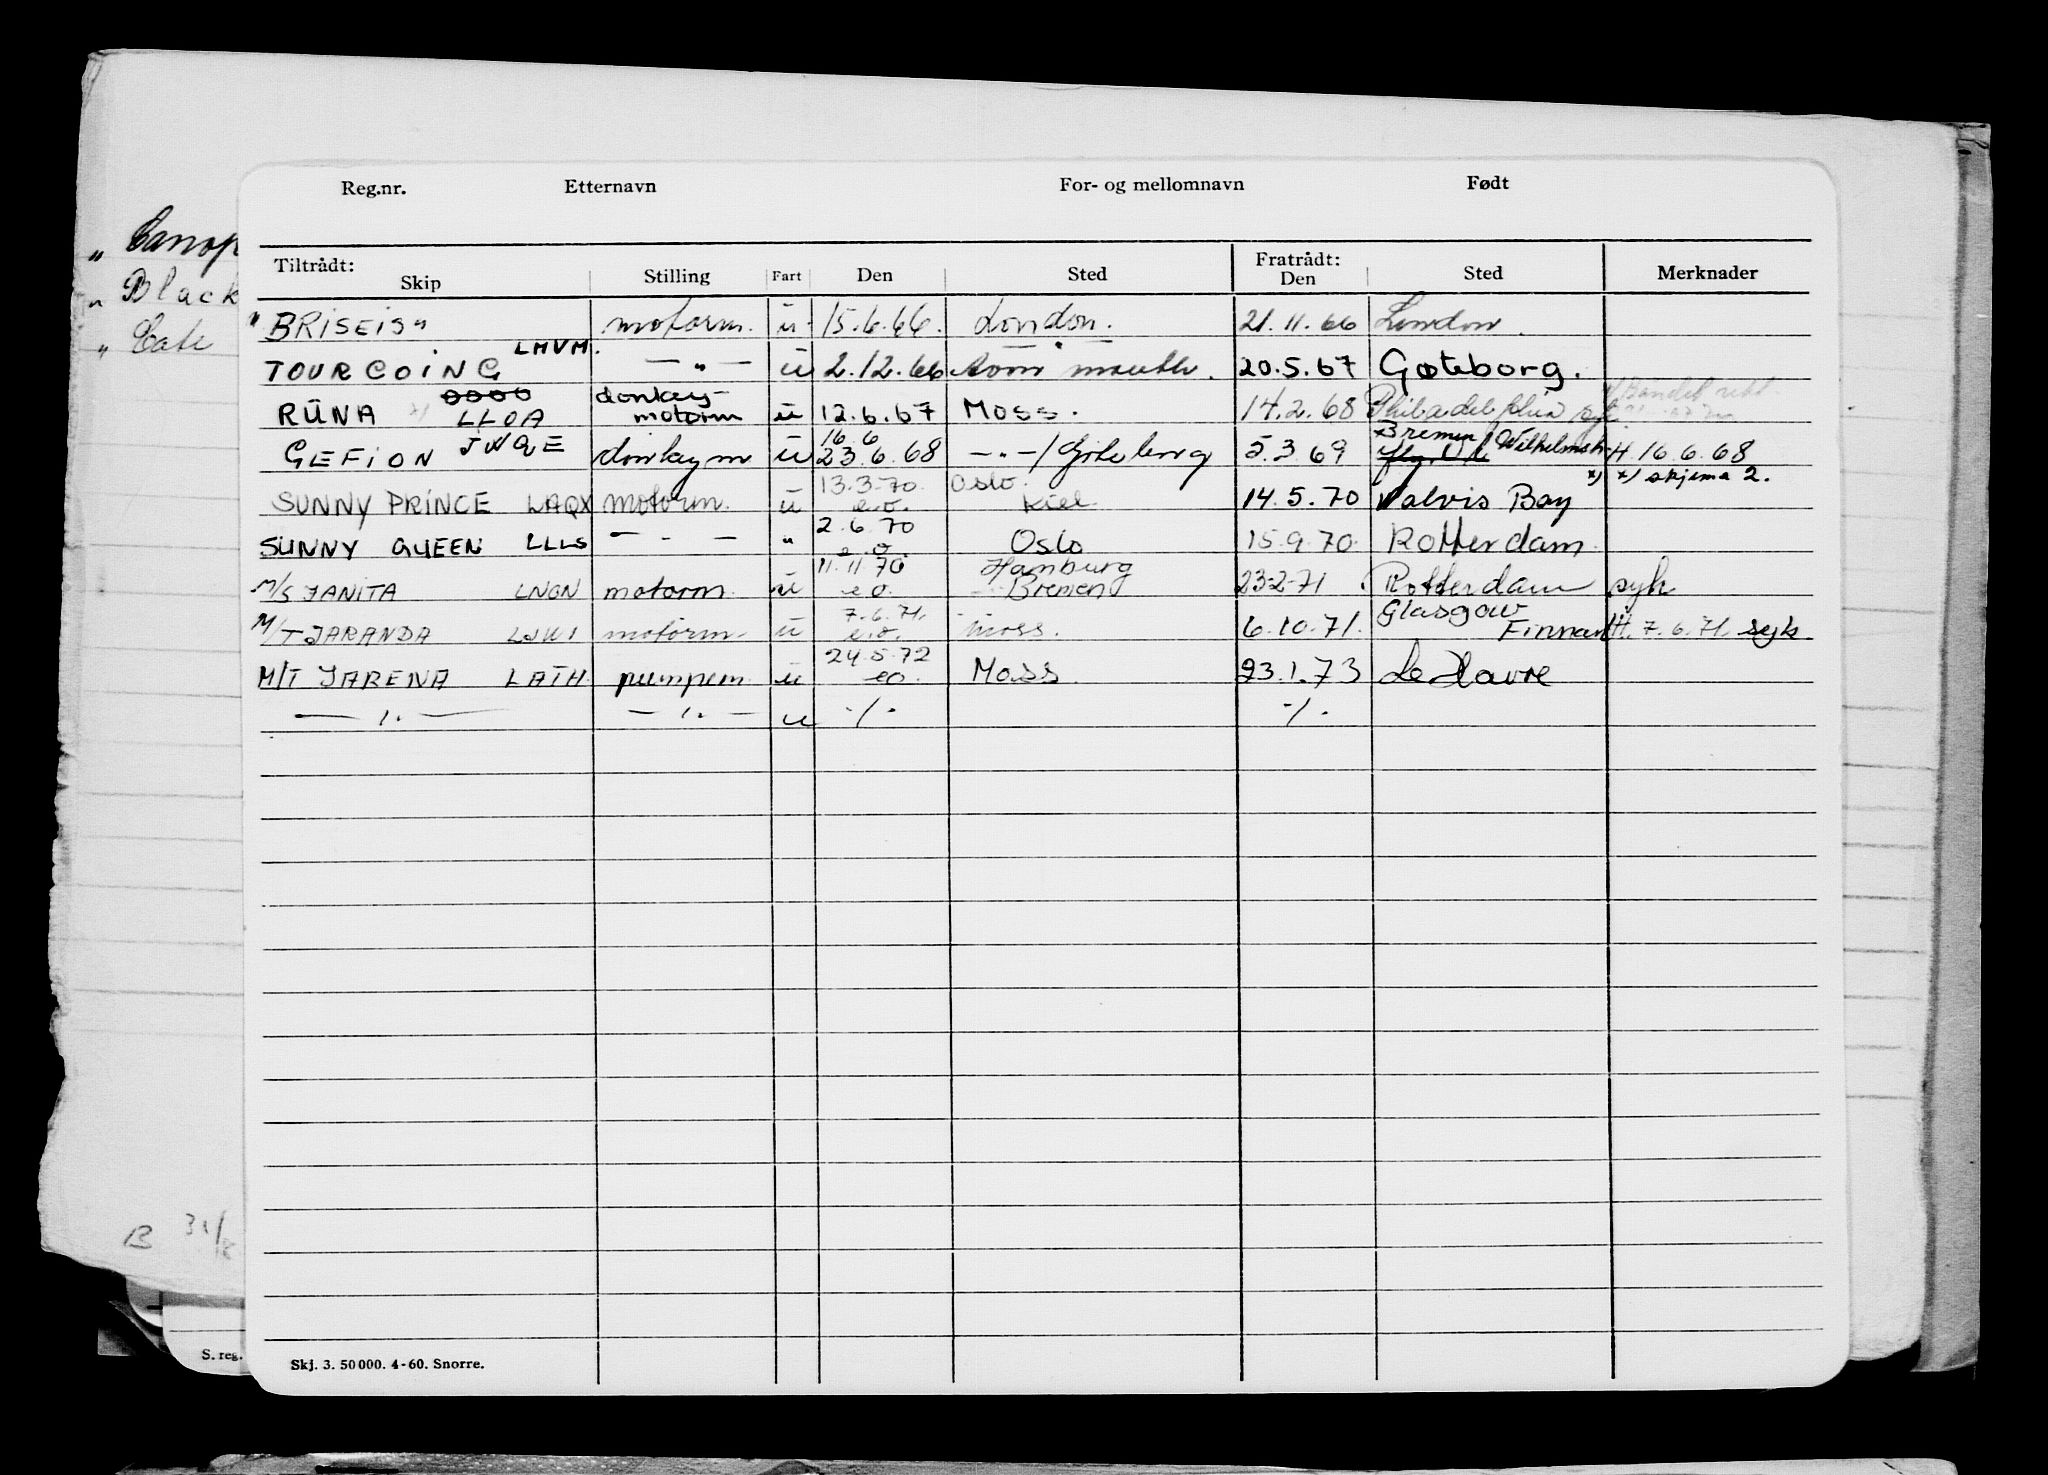 Reg.nr. Etternavn For- og mellomnavn Født
Tiltrådt: Fratrådt:
Skip Stilling Fart Den Sted Den Sted Merknader
„ Canop
„ Black
„ Cate
" BRISEIS " motorm. u 15.6.66. London. 21.11.66 London.
LHVM.
TOURCOING — „ — u 2.12.66 Avonmouth. 20.5.67 Gøteborg.
donkey-
RŪNA x) LLOA motorm u 12.6.67 Moss. 14.2.68 Philadelphia syk
16.6
x Bremen / Wilhelmsh.
GEFION JWQE donkeym u 23.6.68 — „ — / Göteborg 5.3.69 H. 16.6.68
13.3.70. Oslo. x) x) skjema 2.
SUNNY PRINCE LAQX motorm. u e.o. Kiel 14.5.70 Walvis Bay
2.6.70
SUNNY QUEEN LLLS — „ — " e.o. Oslo 15.9.70. Rotterdam.
11.11.70 Hamburg
M/S JANITA LNON motorm. u e.o. Bremen 23-2-71. Rotterdam syk
7.6.71. Glasgow
M/T JARANDA LJWI motorm. u e.o. Moss. 6.10.71. Finnart H. 7.6.71. syk.
24.5.72
M/T JARENA LATH pumpem. u eo. Moss 23.1.73 Le Havre
— ,. — — ,. — u ·/· ·/·
B 31/
S. reg.
Skj. 3. 50 000. 4-60. Snorre.